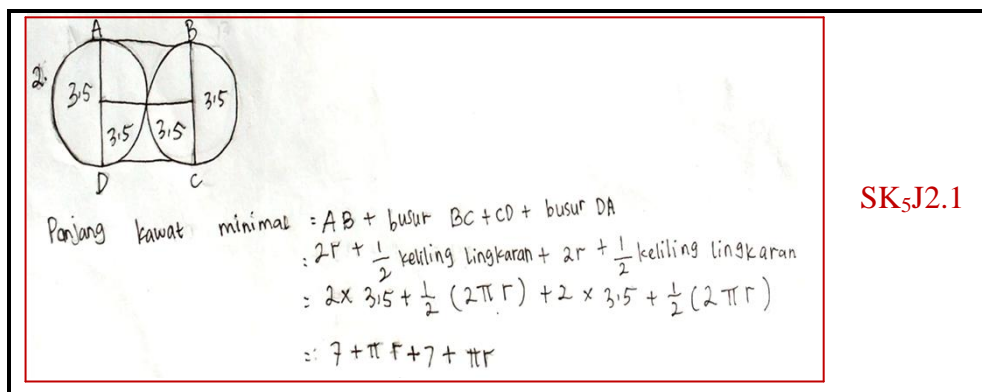 2.
A B
3,5 3,5
3,5 3,5
D C
Panjang kawat minimal = AB + busur BC + CD + busur DA
= 2r + 1/2 keliling lingkaran + 2r + 1/2 keliling lingkaran
= 2 x 3,5 + 1/2 (2πr) + 2 x 3,5 + 1/2 (2πr)
= 7 + πr + 7 + πr
SK₅J2.1